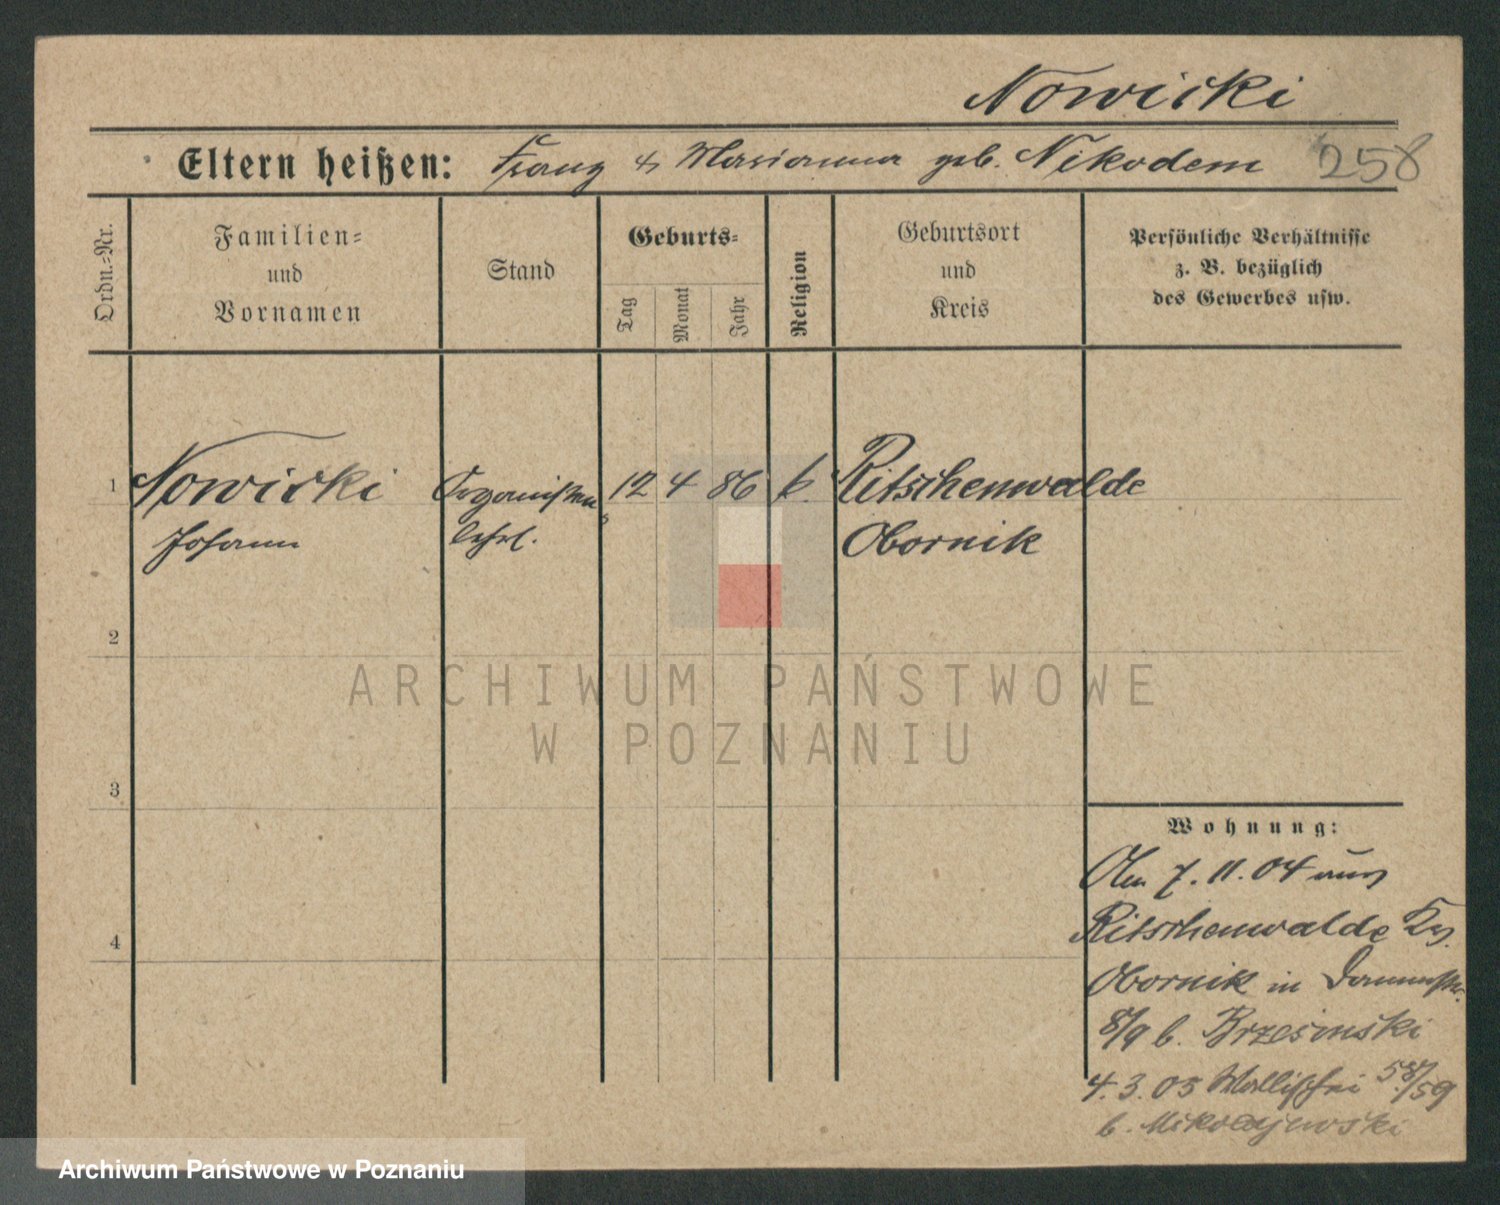 Nowicki
Eltern heißen: Franz & Marianna geb. Nikodem 258
Ordn.-Nr.
Familien-
und
Vornamen
Stand
Geburts-
Tag
Monat
Jahr
Religion
Geburtsort
und
Kreis
Persönliche Verhältnisse
z. B. bezüglich
des Gewerbes usw.
1 Nowicki Organisten 12 4 86 k. Ritschenwalde
Johann lehrl. Obornik
2
ARCHIWUM PAŃSTWOWE
W POZNANIU
3
Wohnung:
Am 7.11.04 aus
4
Ritschenwalde Krs.
Obornik in Dammstr.
8/9 b. Brzesinski
4.3.05 Wallischei 58/59
b. Mikolajewski
Archiwum Państwowe w Poznaniu